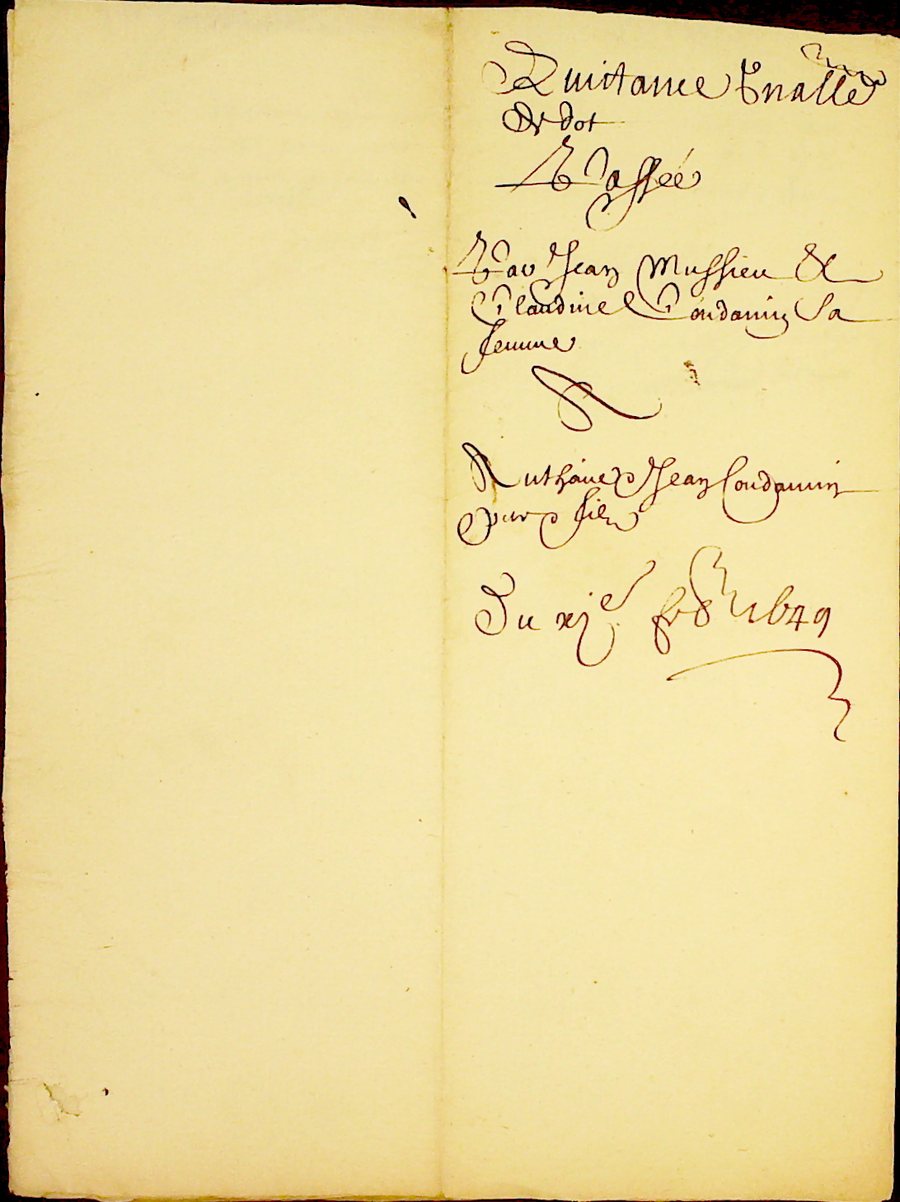 Quictance Fnalle
De dot
Passée
Par Jean Mussieu &
Claudine Condamin Sa
femme
A
Anthoine Jean Condamin
Du xje 1649